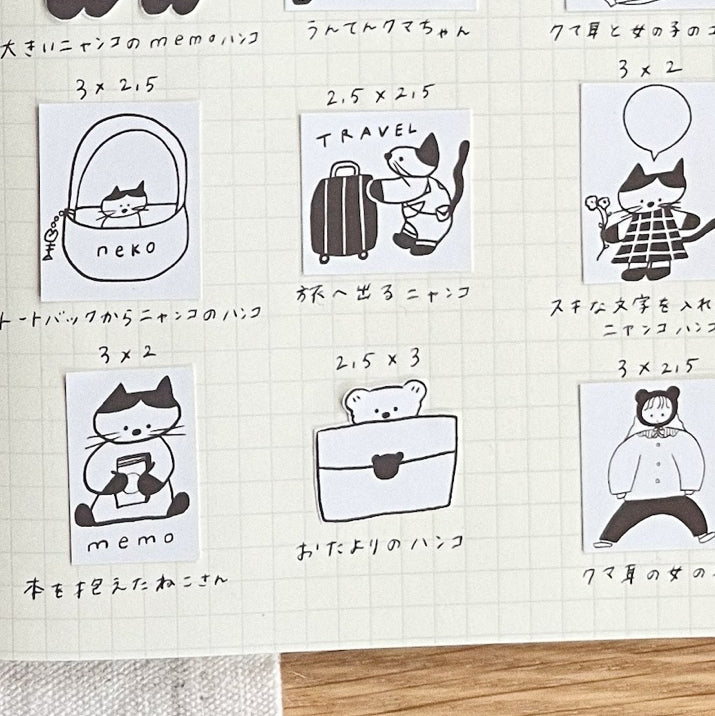 大きいニャンコのmemoハンコ
うんてんクマちゃん
クマ耳と女の子の
3×2.5
neko
トートバックからニャンコのハンコ
2.5×2.5
TRAVEL
旅へ出るニャンコ
3×2
スキな文字を入れ
ニャンコハンコ
3×2
memo
本を抱えたねこさん
2.5×3
おたよりのハンコ
3×2.5
クマ耳の女の